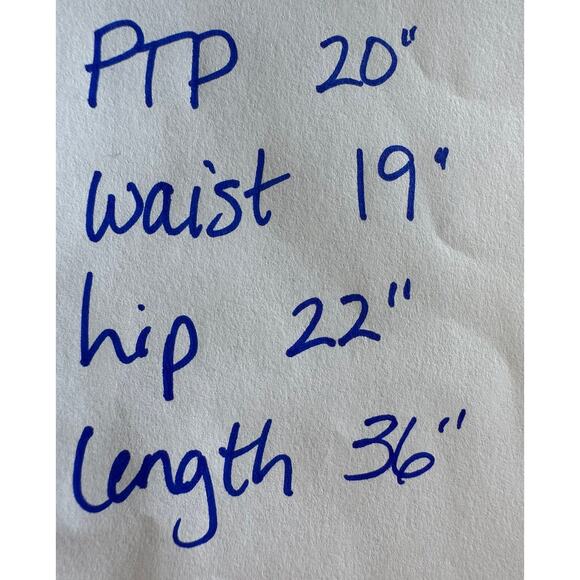 PTP 20"
waist 19"
hip 22"
length 36"